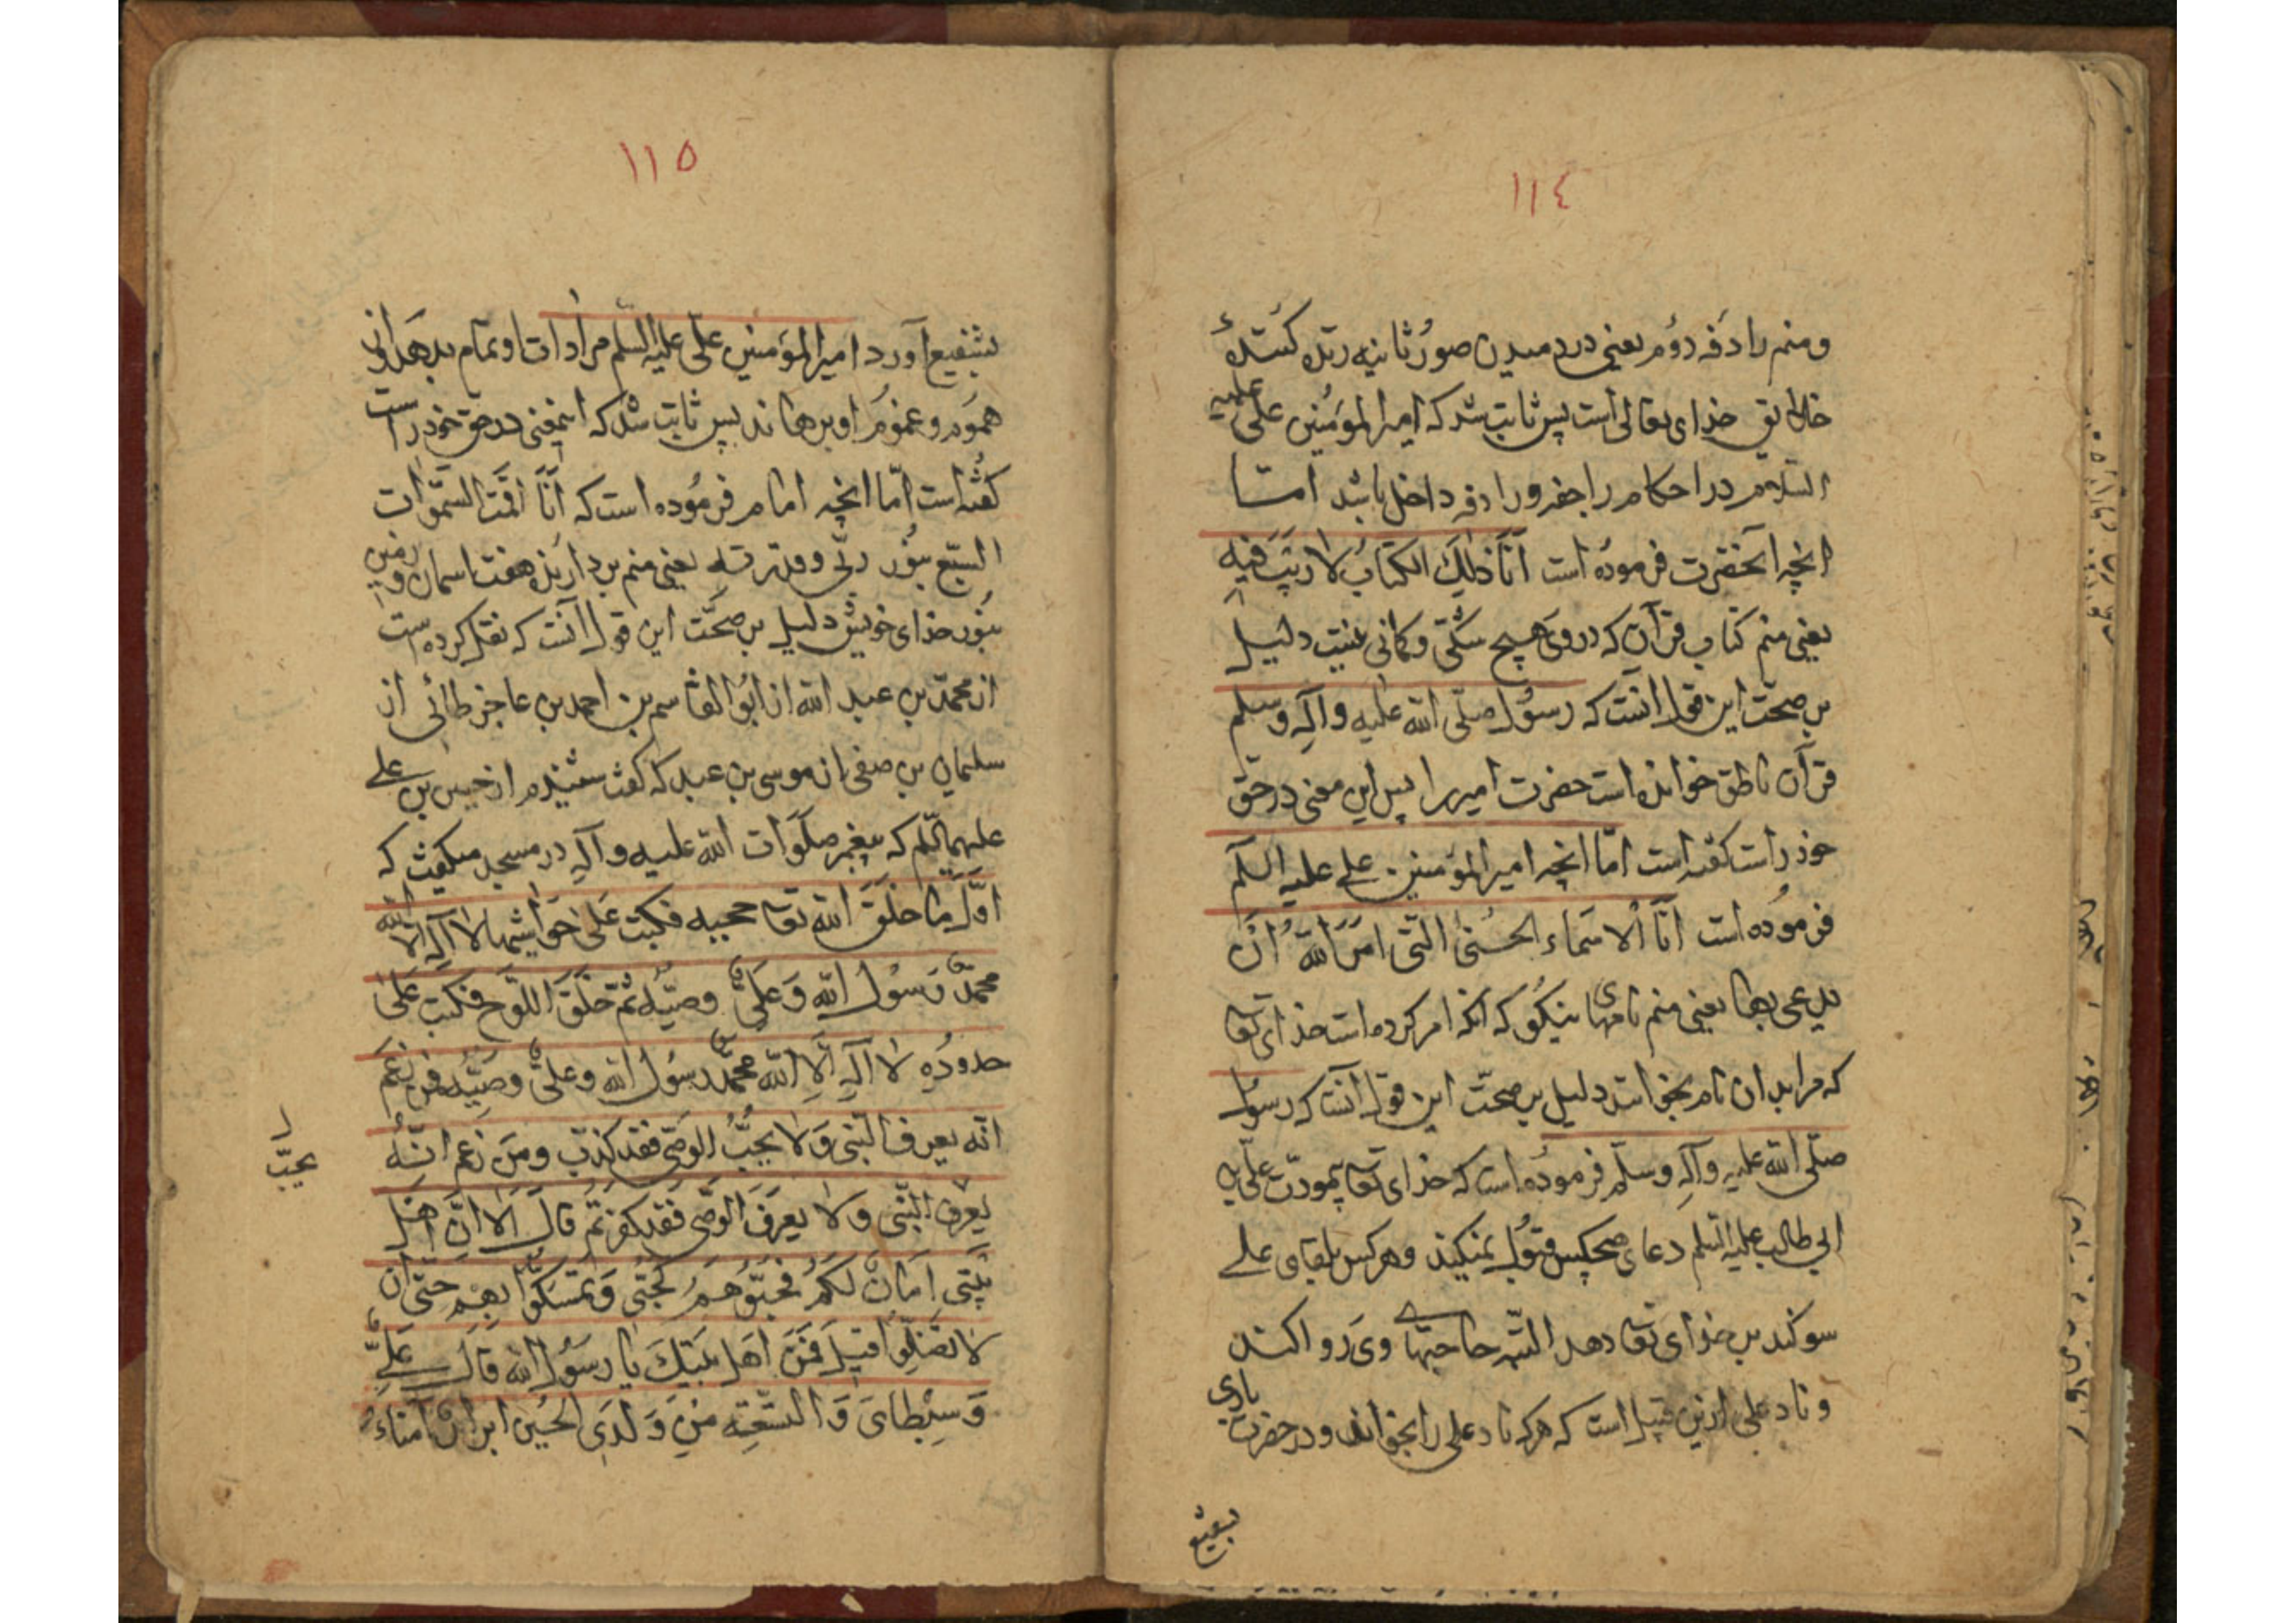 ١١٤
ومنم رادفه دوم یعنی در دمیدن صور ثانیه زنده کنندهٔ
خلایق خدای تعالی است پس ثابت شد که امیر المؤمنین علی علیه
السلام در احکام راجفه و رادفه داخل باشد امّا
انچه آنحضرت فرموده است اَنَا ذٰلِكَ الکتابُ لا رَیبَ فیهِ
یعنی منم کتاب قرآن که در وی هیچ شکّی و کمانی نیست دلیل
بر صحّت این قول آنست که رسول صلّی الله علیه وآلِه وسلم
قرآن ناطق خوانده است حضرت امیر را پس این معنی در حق
خود راست کفته است امّا انچه امیر المؤمنین علی علیه السلم
فرموده است اَنَا الاسماء الحسنی الّتی امَرَ اللهُ اَن
یدعی بها یعنی منم نامهای نیکو که انکه امر کرده است خدای تعا
که مرا بدان نام بخوانند دلیل بر صحّت این قول آنست که رسول
صلّی الله علیه وآلِه وسلّم فرموده است که خدای تعا بیمودّت علی بن
ابی طالب علیه السلم دعای هیچکس قبول نمیکند وهر کس بلقای علی
سوکند بر خدای تعا دهد البتّه حاجتهای وی روا کند
و ناد علی ازین قبیل است که هرکه ناد علی را بخواند و در حضرت باری
بشفیع
١١٥
بشفیع آورد امیر المؤمنین علی علیه السلم مرادات او تمام بدهد
هموم و غموم او برهاند پس ثابت شد که اینمعنی در حق خود راست
کفته است امّا انچه امام فرموده است که اَنَا اقمت السّموات
السّبع بنور ربّی وقدرته یعنی منم بردارنده هفت اسمان و زمین
بنور خدای خویش دلیل بر صحّت این قول آنست که نقل کرده است
از محمّد بن عبد الله از ابو القاسم بن احمد بن عاجز طائی از
سلیمان بن صفی از موسی بن عبد که کفت شنیدم از حسین بن علی
علیهما السّلم که پیغمبر صلوات الله علیه وآلِه در مسجد میکفت که
اوّلَ ما خَلَقَ الله تعا حجبه فکتب عَلی حَواشیها لا اِلٰه الّا الله
محمّدٌ رَسُول الله وَعلیٌّ وصیّه ثُمّ خَلَقَ اللّوح فکتب عَلیٰ
حدودِه لا اِلٰه اِلّا الله محمّد رسُول الله وعلیٌّ وصیّه فمن زعمَ
انّه یعرف النّبی وَلا یحبُّ الوصی فقد کذب ومَن زعم انّهُ
یحبّ
یعرف النّبی ولا یعرف الوصی فقد کفر ثمّ قال الا انّ اهل
بیتی امَانٌ لکم فحبّوهم لحبّی وتمسّکوا بهم حتّی ان
لا تضلّوا قیل فمن اهل بیتك یا رسول الله قال علیٌّ
وَسِبْطای وَالتّسعه مِن وَلَدی الحسین ابرارٌ امناءُ